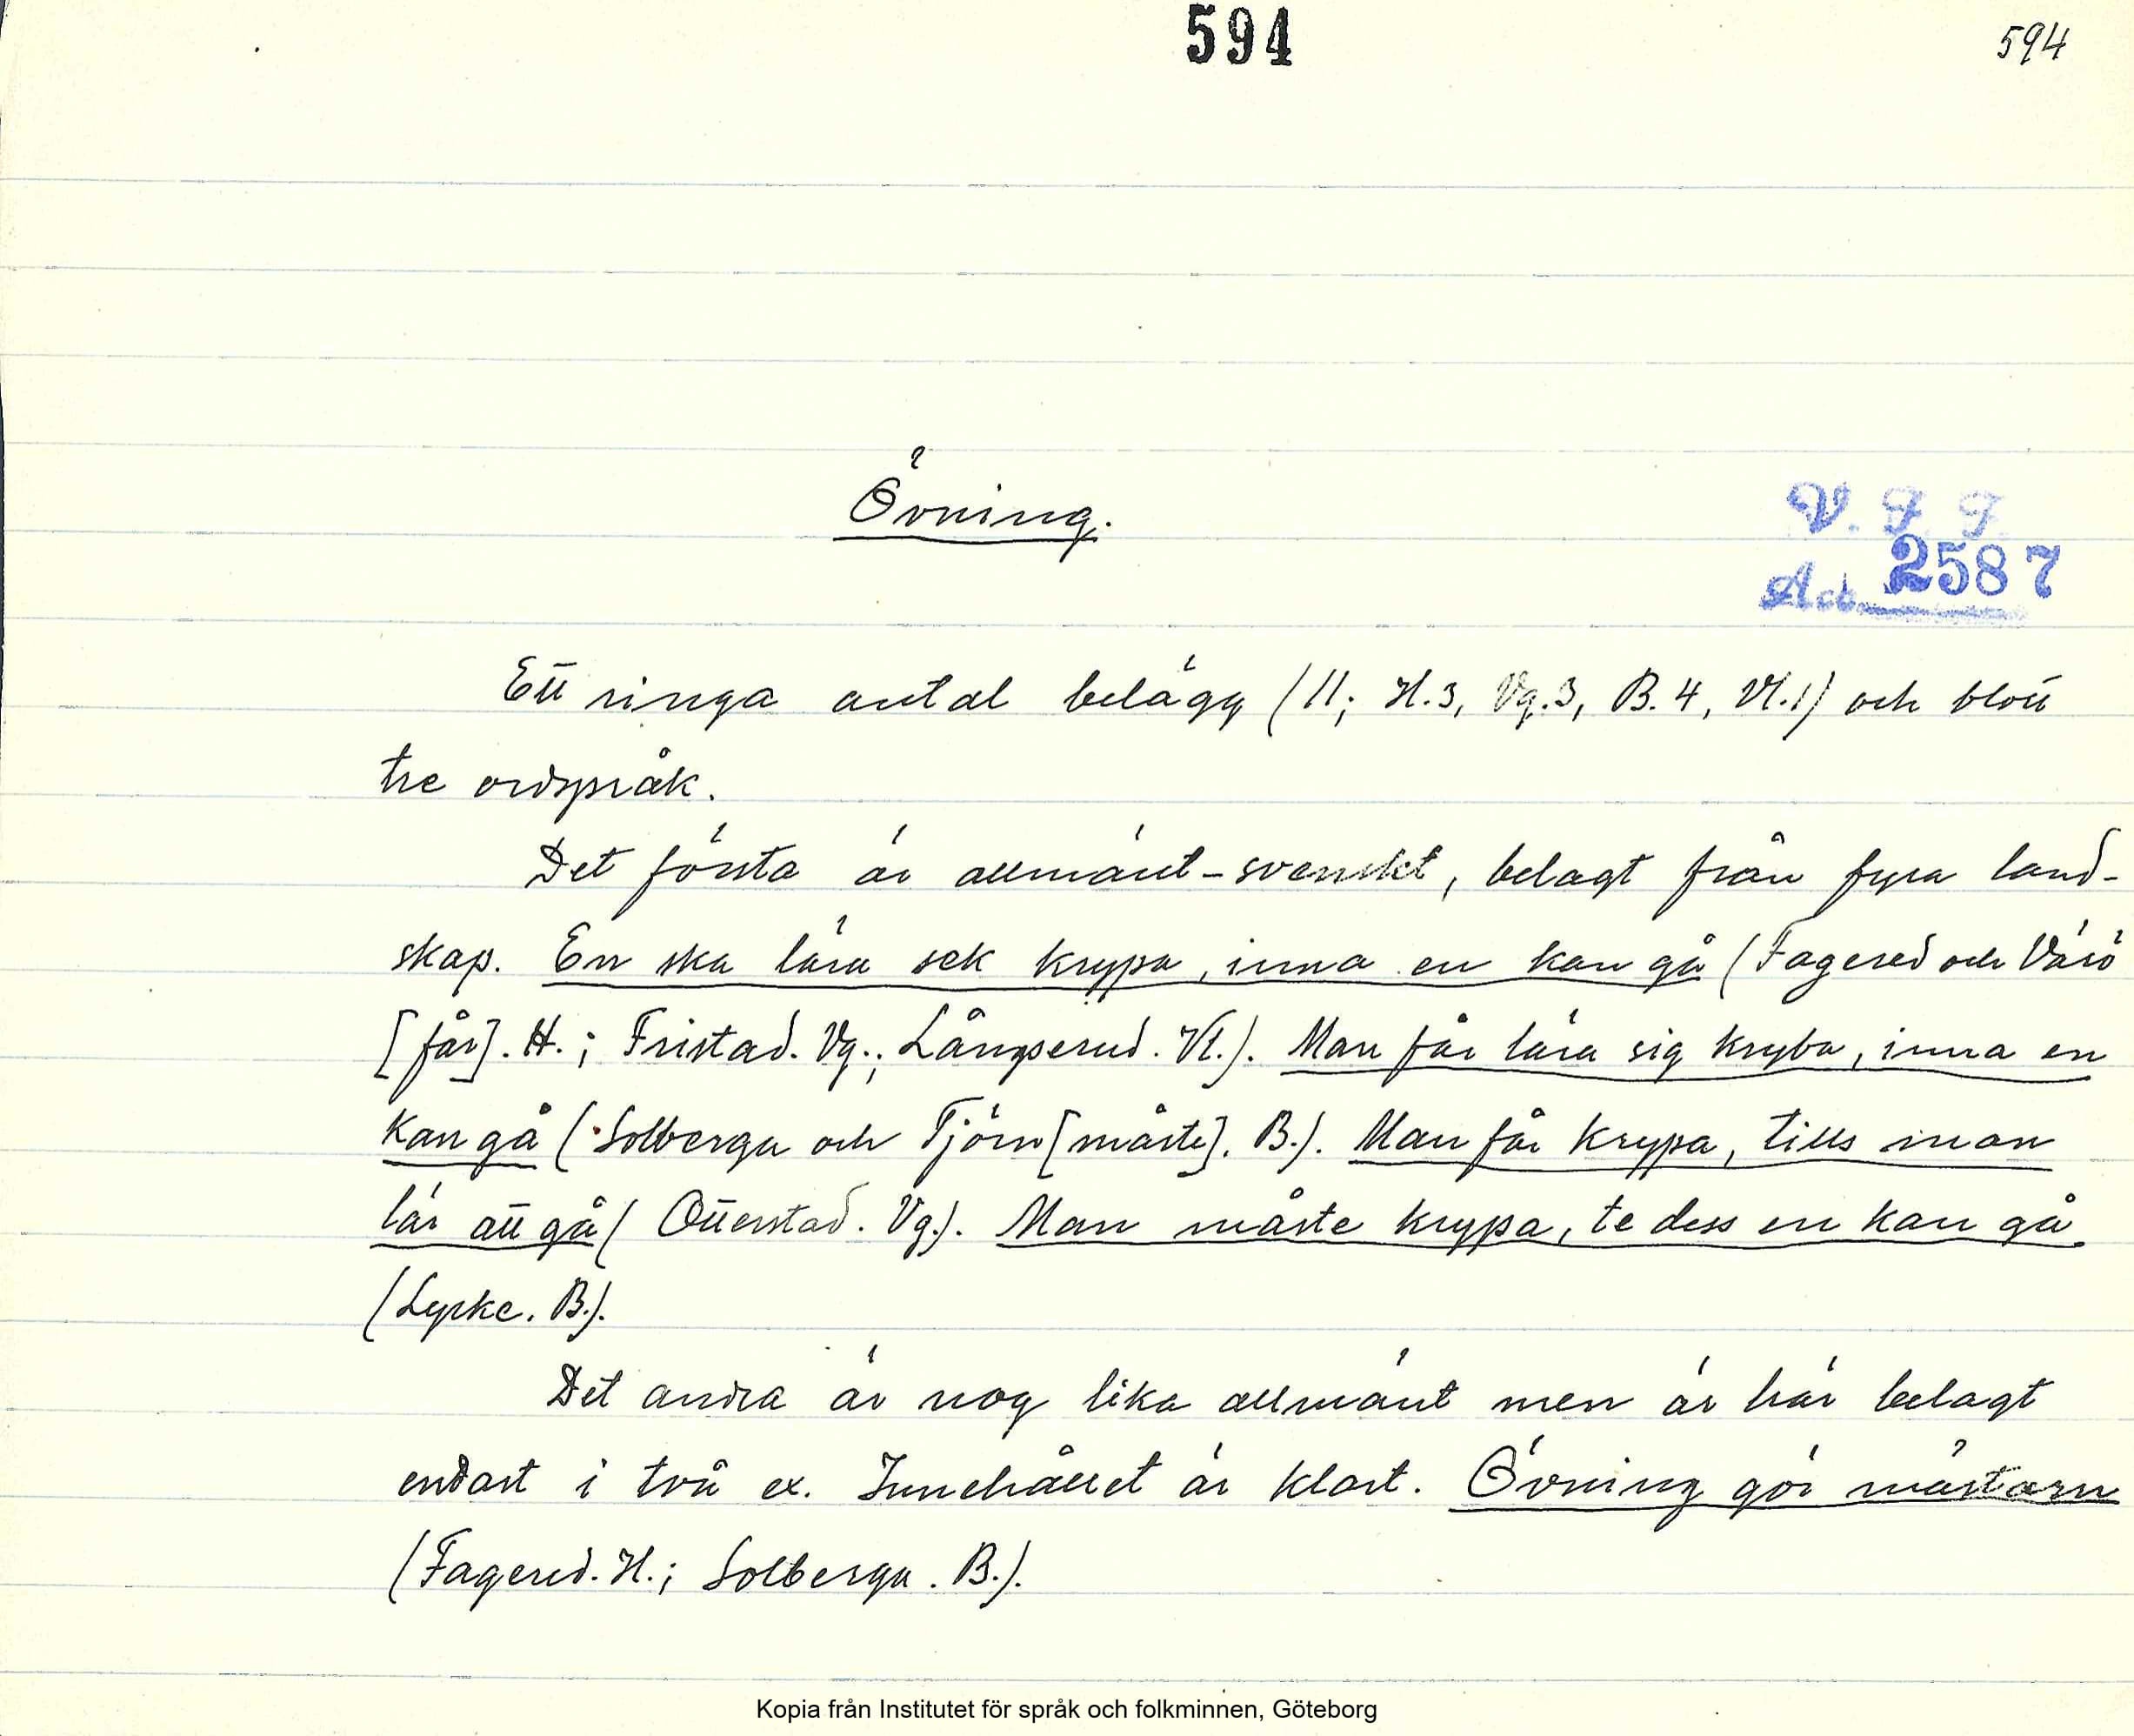 594
594
Övning.
V. F. F.
Acc. 2587
Ett ringa antal belägg (11; H. 3, Vg. 3, B. 4, Vl. 1) och blott
tre ordspråk.
Det första är allmänt-svenskt, belagt från fyra land-
skap. En ska lära sek krypa, inna en kan gå (Fagered och Värö
[får]. H.; Fristad. Vg.; Långserud. Vl.). Man får lära sig kryba, inna en
kan gå (Solberga och Tjörn [måste]. B.). Man får krypa, tills man
lär att gå (Otterstad. Vg.). Man måste krypa, te dess en kan gå
(Lyrke. B.).
Det andra är nog lika allmänt men är här belagt
endast i två ex. Innehållet är klart. Övning gör mästarn
(Fagered. H.; Solberga. B.).
Kopia från Institutet för språk och folkminnen, Göteborg